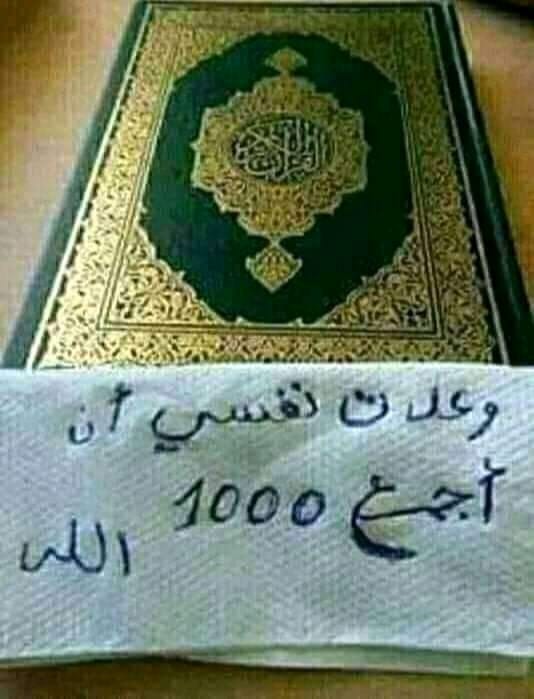 القرآن الكريم
وعدت نفسي أن
أجمع 1000
الله